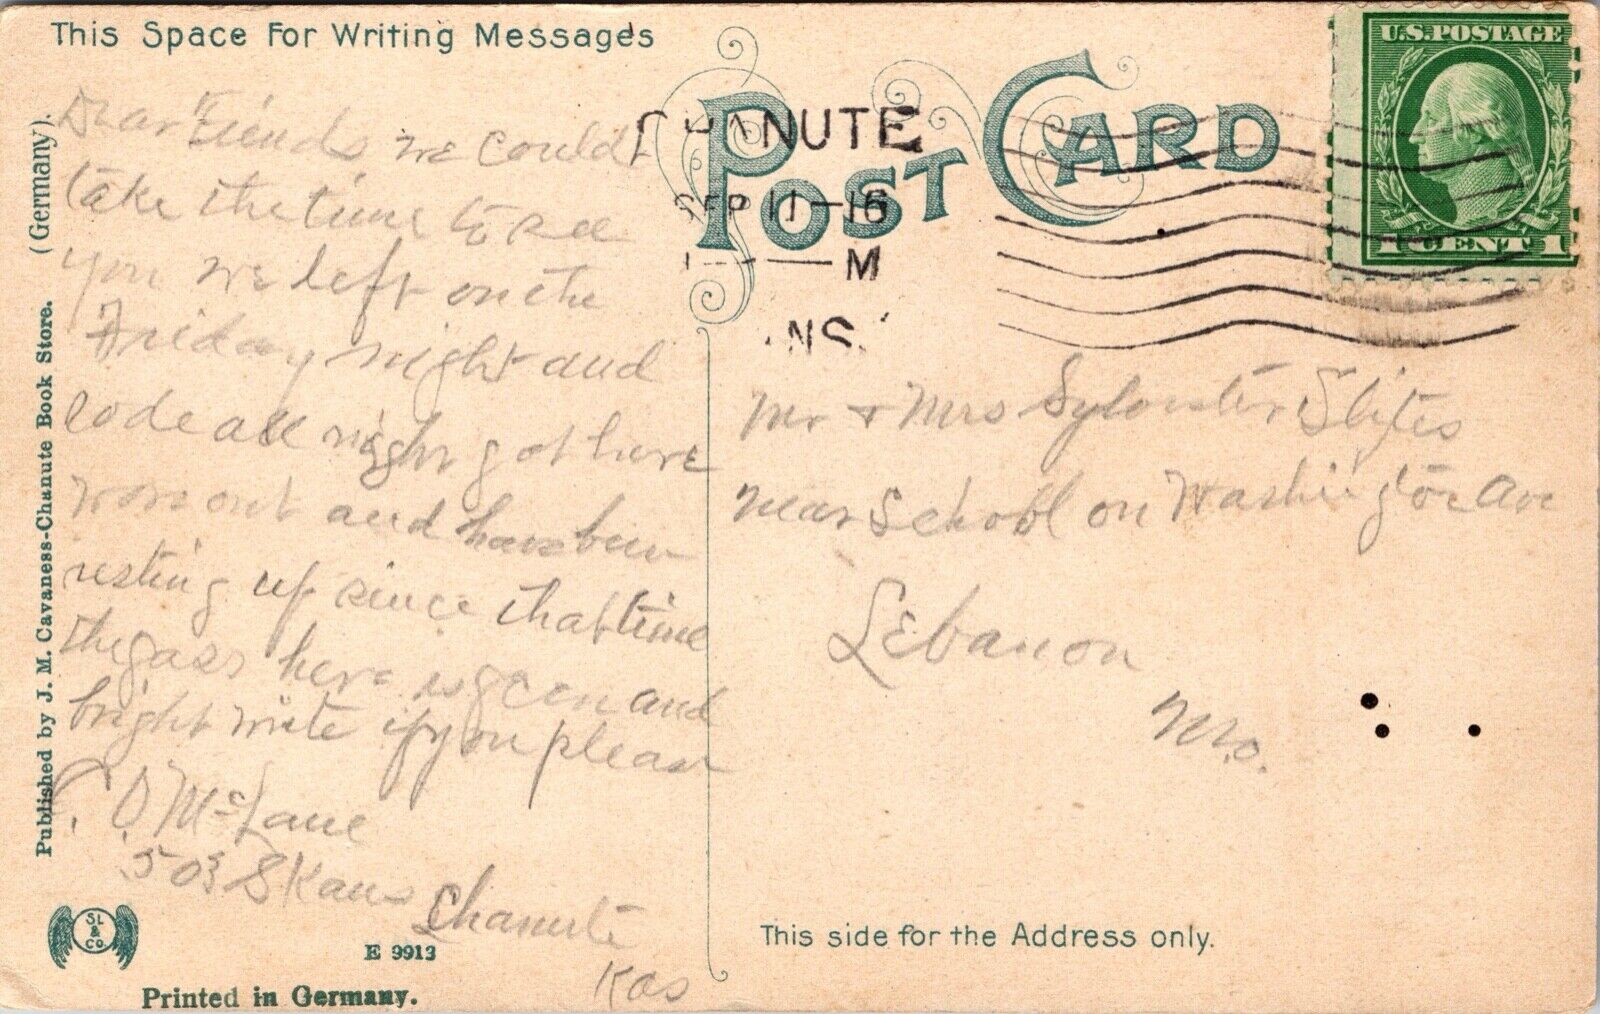 This Space For Writing Messages
POST CARD
U.S. POSTAGE
1 CENT 1
CHANUTE
SEP 11-16
M
ANS.
Dear Friends we could
take the time to see
you we left on the
Friday night and
rode all night got here
worn out and have been
resting up since that time
the gass here is green and
bright write if you please
C. O. McLane
503 S Kans
Chanute
Kas
Mr + Mrs Sylvester
near School on Washington Ave
Lebanon
Mo.
Published by J. M. Cavaness-Chanute Book Store. (Germany).
SL & Co.
E 9913
Printed in Germany.
This side for the Address only.